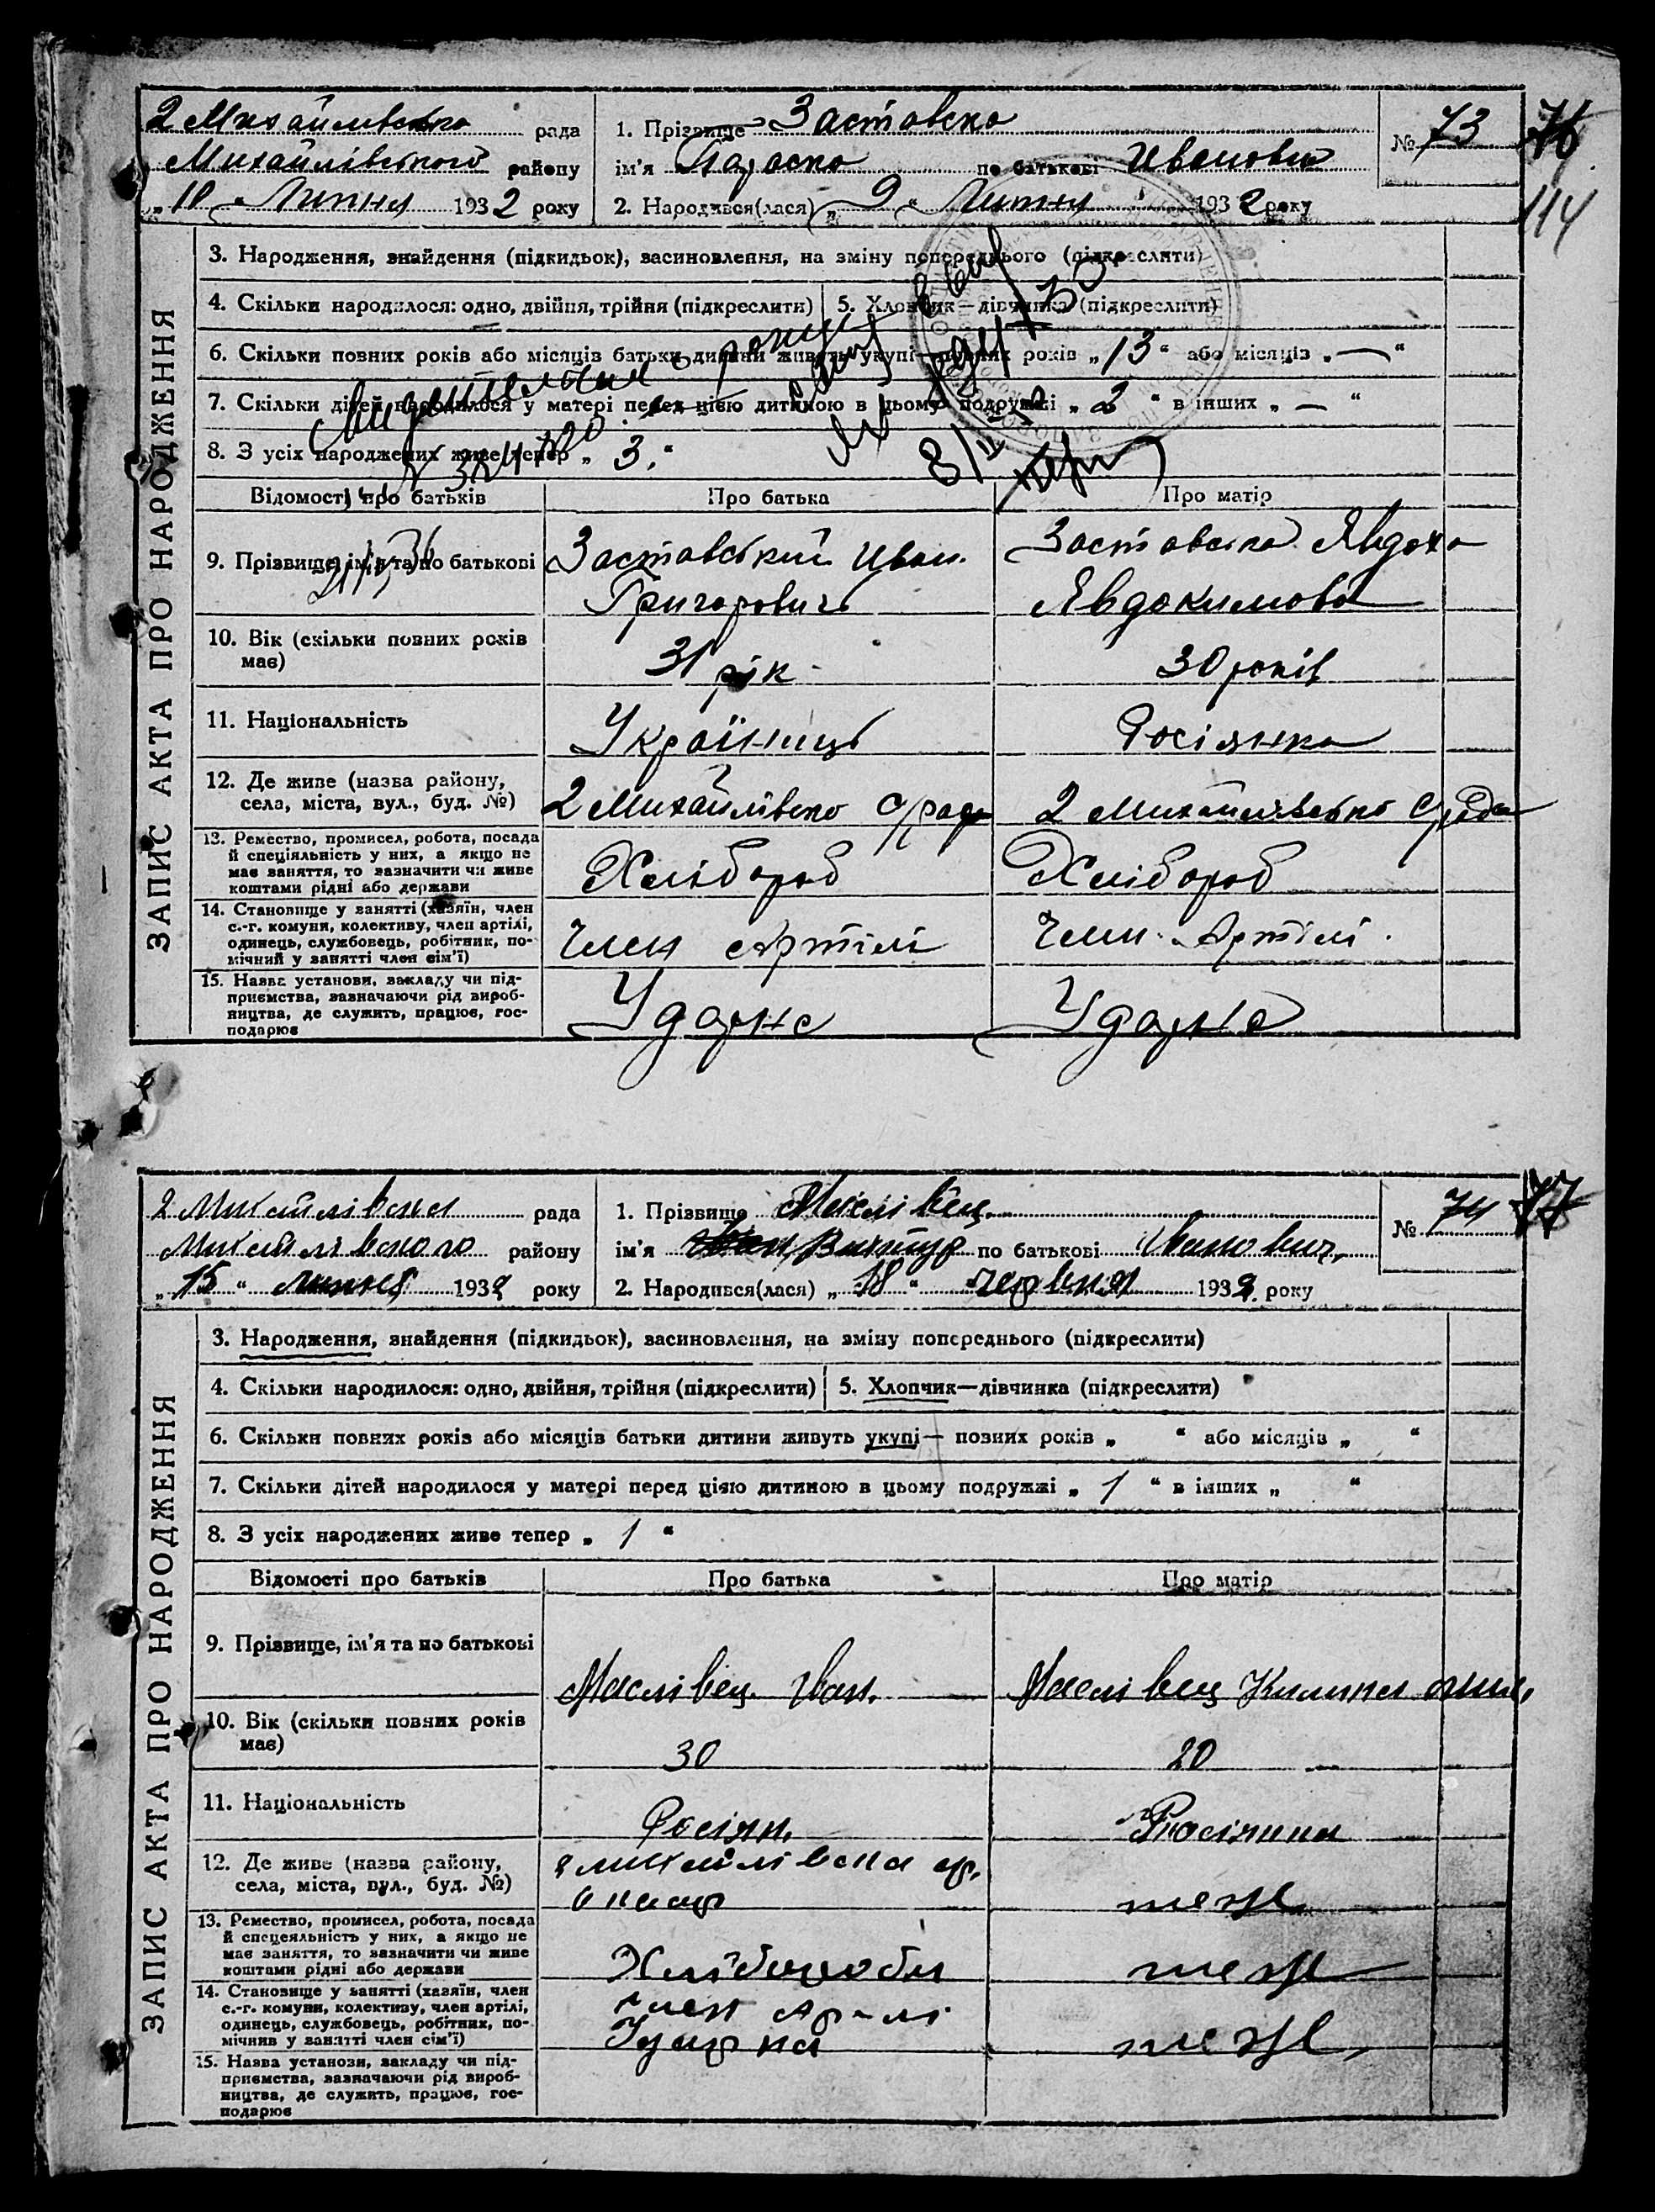 2 Михайлівсько рада
1. Прізвище Заставско
№ 73
76
Михайлівського району
ім'я Параска по батькові Ивановна
„10“ Липня 1932 року
2. Народився(лася) „9“ Липня 1932 року
114
ЗАПИС АКТА ПРО НАРОДЖЕННЯ
3. Народження, знайдення (підкидьок), засиновлення, на зміну попереднього (підкреслити)
4. Скільки народилося: одно, двійня, трійня (підкреслити)
5. Хлопчик—дівчинка (підкреслити)
6. Скільки повних років або місяців батьки дитини живуть укупі—повних років „13“ або місяців „—“
7. Скільки дітей народилося у матері перед цією дитиною в цьому подружжі „2“ в інших „—“
8. З усіх народжених живе тепер „3.“
Відомості про батьків
Про батька
Про матір
9. Прізвище, ім'я та по батькові
Заставський Иван
Григорович
Заставска Явдоха
Явдокимова
10. Вік (скільки повних років має)
31 рік
30 років
11. Національність
Українець
Росіянка
12. Де живе (назва району, села, міста, вул., буд. №)
2 Михайлівско с/рада
2 Михайлівсько с/рада
13. Ремество, промисел, робота, посада
й спеціяльність у них, а якщо не
має заняття, то зазначити чи живе
коштами рідні або держави
Хлібороб
Хлібороб
14. Становище у занятті (хазяїн, член
с.-г. комуни, колективу, член артілі,
одинець, службовець, робітник, по-
мічний у занятті член сім'ї)
Член Артілі
Член Артілі.
15. Назва установи, закладу чи під-
приємства, зазначаючи рід вироб-
ництва, де служить, працює, гос-
подарює
Ударне
Ударне
2 Михайлівска рада
1. Прізвище Маслівец
№ 74
77
Михайлівского району
ім'я Виктур по батькові Іванович,
„15“ липня 1932 року
2. Народився(лася) „18“ червня 1932 року
ЗАПИС АКТА ПРО НАРОДЖЕННЯ
3. Народження, знайдення (підкидьок), засиновлення, на зміну попереднього (підкреслити)
4. Скільки народилося: одно, двійня, трійня (підкреслити)
5. Хлопчик—дівчинка (підкреслити)
6. Скільки повних років або місяців батьки дитини живуть укупі— повних років „ “ або місяців „ “
7. Скільки дітей народилося у матері перед цією дитиною в цьому подружжі „1“ в інших „ “
8. З усіх народжених живе тепер „1“
Відомості про батьків
Про батька
Про матір
9. Прізвище, ім'я та по батькові
Маслівец Іван.
Маслівец Килина
10. Вік (скільки повних років має)
30
20
11. Національність
Росіян.
Росіянка
12. Де живе (назва району, села, міста, вул., буд. №)
2 михайлівска ср.
теж
13. Ремество, промисел, робота, посада
й спецеяльність у них, а якщо не
має заняття, то зазначити чи живе
коштами рідні або держави
Хліборобы
теж
14. Становище у занятті (хазяїн, член
с.-г. комуни, колективу, член артілі,
одинець, службовець, робітник, по-
мічник у занятті член сім'ї)
член Ар-лі
Ударна
теж,
15. Назва установи, закладу чи під-
приємства, зазначаючи рід вироб-
ництва, де служить, працює, гос-
подарює